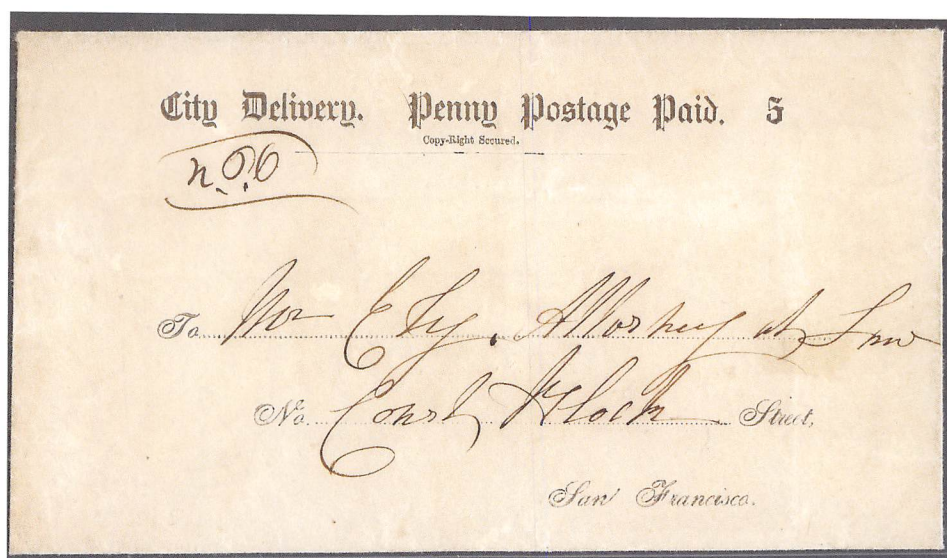 City Delivery. Penny Postage Paid. 5
Copy-Right Secured.
To Mr E Fy. Attorney at Law
No. Court Block Street,
San Francisco.